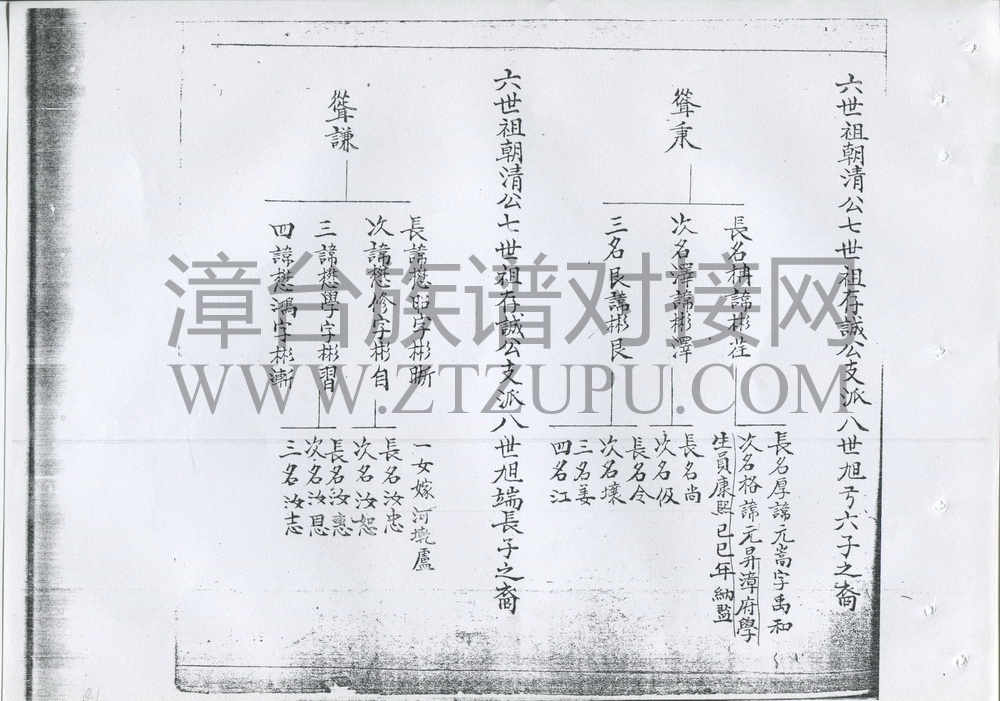 六世祖朝清公七世祖存誠公支派八世旭亐六子之裔
聳秉
長名栴諱彬莊
次名澤諱彬澤
三名艮諱彬艮
長名厚諱元嵩字禹和
次名格諱元昇漳府學
生員康熙己巳年納監
長名尚
次名伋
長名令
次名壤
三名姜
四名江
六世祖朝清公七世祖存誠公支派八世旭端長子之裔
聳謙
長諱懋昭字彬晰
次諱懋修字彬自
三諱懋學字彬習
四諱懋鴻字彬漸
一女嫁河墘盧
長名汝忠
次名汝恕
長名汝惠
次名汝恩
三名汝志
漳台族谱对接网
WWW.ZTZUPU.COM